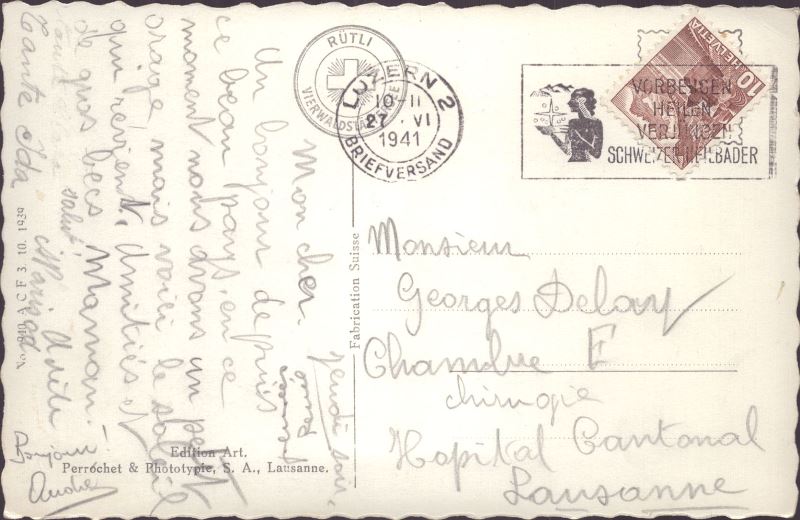 RÜTLI
VIERWALDSTÄTTERSEE
LUZERN 2
10-11
27. VI
1941
BRIEFVERSAND
VORBEUGEN
HEILEN
VERJÜNGEN
SCHWEIZER HEILBÄDER
HELVETIA
10
Mon cher.
Un bonjour depuis
ce beau pays, en ce
moment nous avons un petit
orage mais voici le soleil
qui revient. Amitiés et
de gros becs. Maman.
salut
Tante Ida
Bonjour
André
Fabrication Suisse
Monsieur
Georges Delay
Chambre F
chirurgie
Hopital Cantonal
Lausanne
Edition Art.
Perrochet & Phototypie, S. A., Lausanne.
A C F 3. 10. 1939